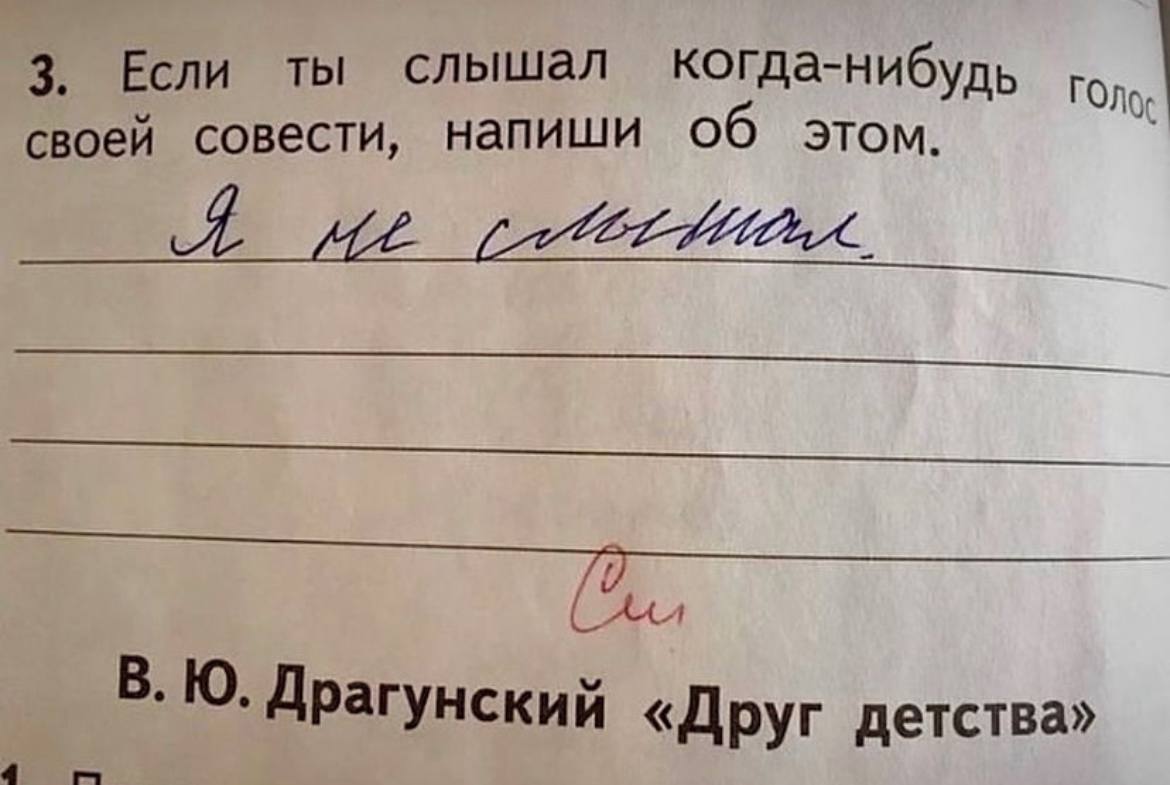 3. Если ты слышал когда-нибудь голос
своей совести, напиши об этом.
Я не слышал.
См
В. Ю. Драгунский «Друг детства»
1. П